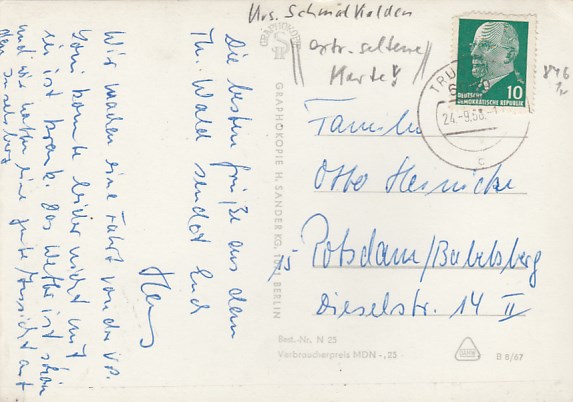 Krs. Schmalkalden
extr. seltene
Karte!
TRU
24.-9.68.-1
c
10
DEUTSCHE
DEMOKRATISCHE REPUBLIK
Die besten Grüße aus dem
Th. Wald sendet Euch
Hans
Wir machen eine Fahrt von der V.P.
konnte leider nicht mit
sie ist krank. Das Wetter ist schön
und wir hatten eine gute Aussicht auf
den Inselsberg
GRAPHOKOPIE
GRAPHOKOPIE H. SANDER KG, 1071 BERLIN
Familie
Otto Heinicke
15-
Potsdam/Babelsberg
Dieselstr. 14 II
Best.-Nr. N 25
Verbraucherpreis MDN -,25
B 8/67